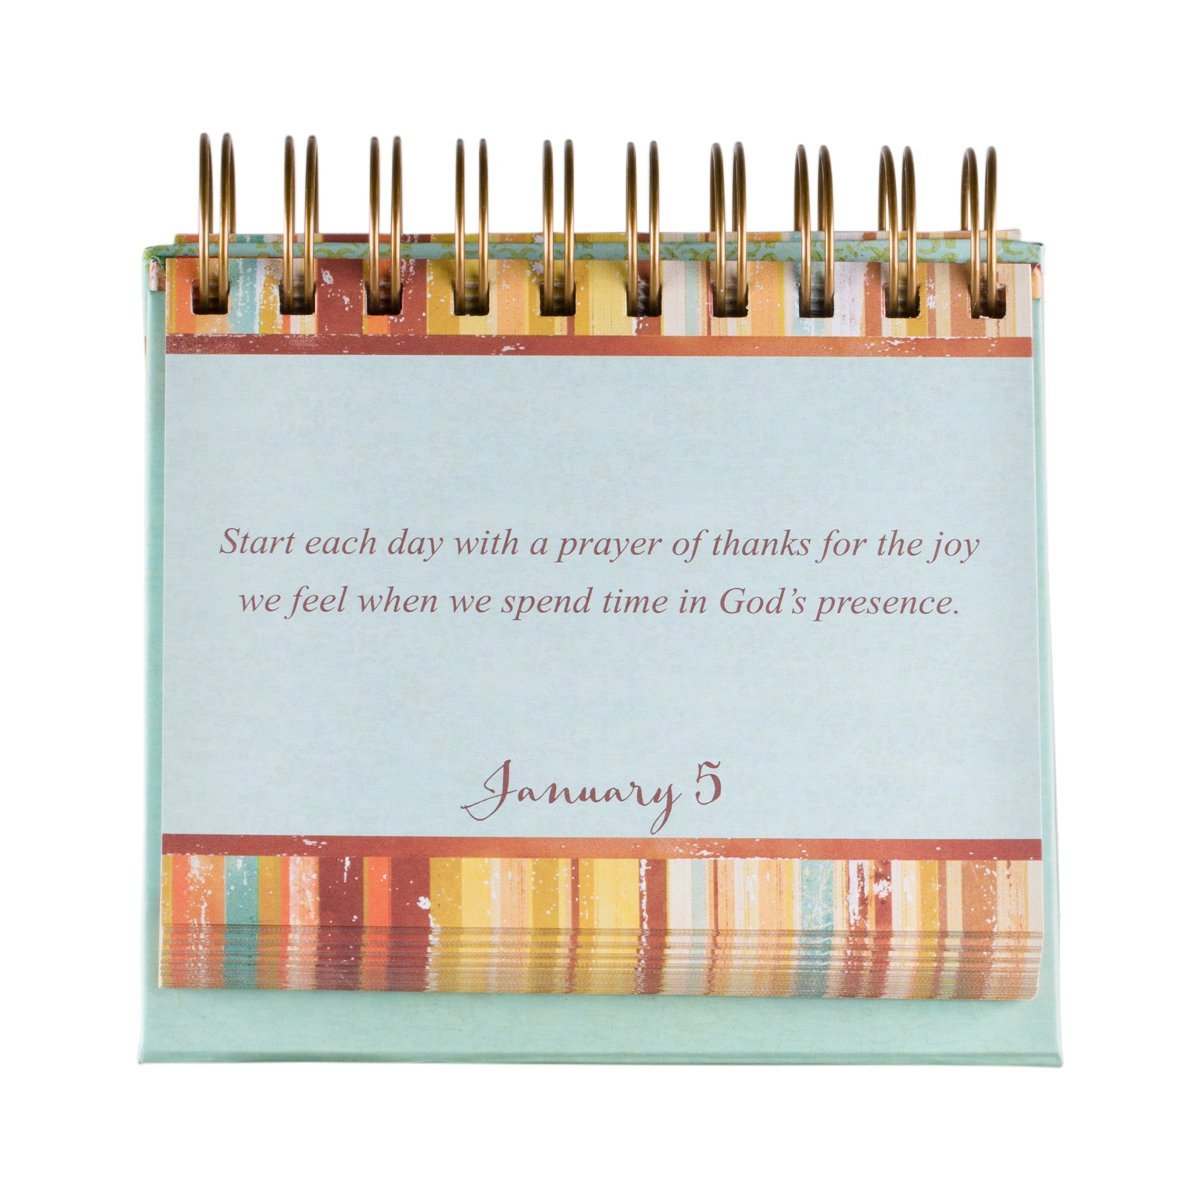 Start each day with a prayer of thanks for the joy
we feel when we spend time in God’s presence.
January 5